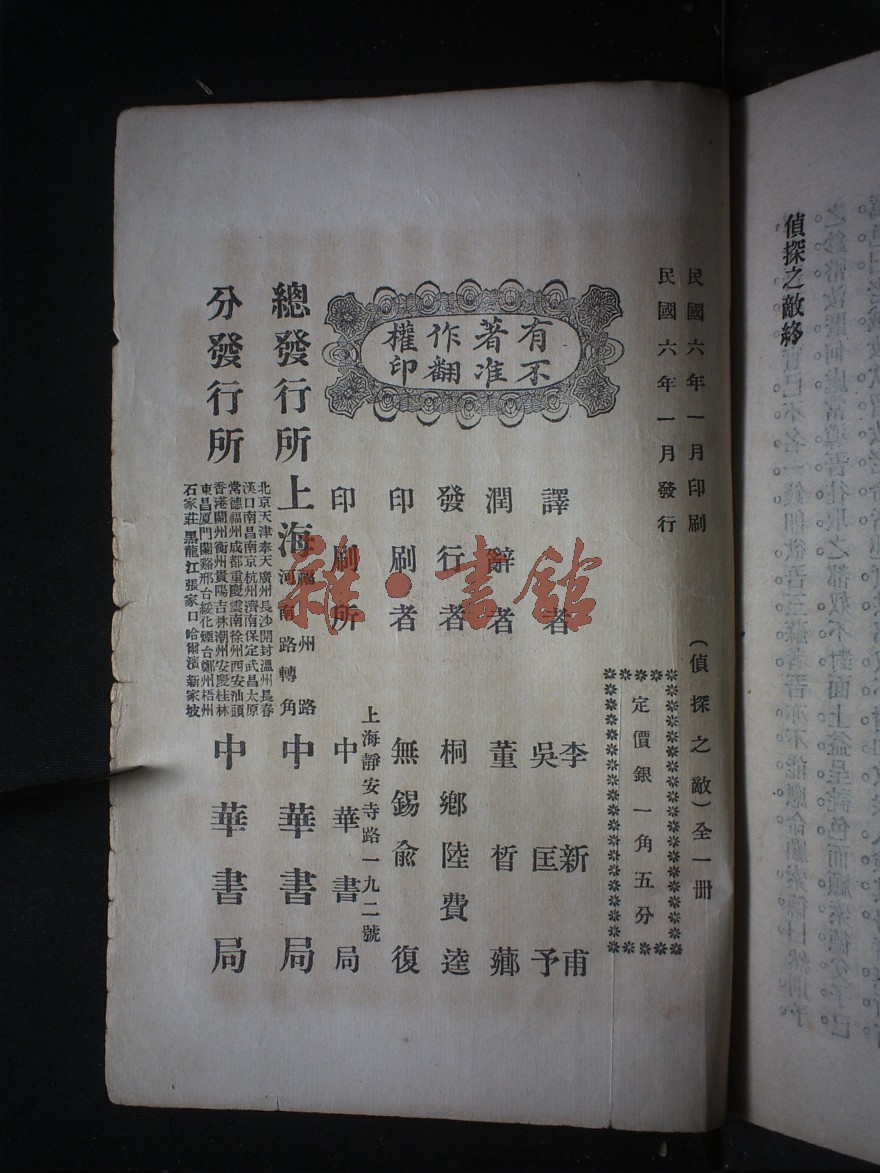 偵探之敵終
民國六年一月印刷
民國六年一月發行
(偵探之敵)全一冊
定價銀一角五分
有著作權
不准翻印
譯者 李新甫
吳匡予
潤辭者 董晳薌
發行者 桐鄉陸費逵
印刷者 無錫俞復
上海靜安寺路一九二號
印刷所 中華書局
總發行所 上海 福州路
河南路轉角
中華書局
分發行所
北京天津奉天廣州長沙開封溫州長春
漢口南昌南京杭州濟南保定武昌太原
常德福州成都重慶雲南徐州西安汕頭
香港蘭州衡州貴陽吉林潮州安慶桂林
東昌厦門蘭谿邢台綏化煙台鄭州梧州
石家莊黑龍江張家口哈爾濱新家坡
中華書局
雜·書館